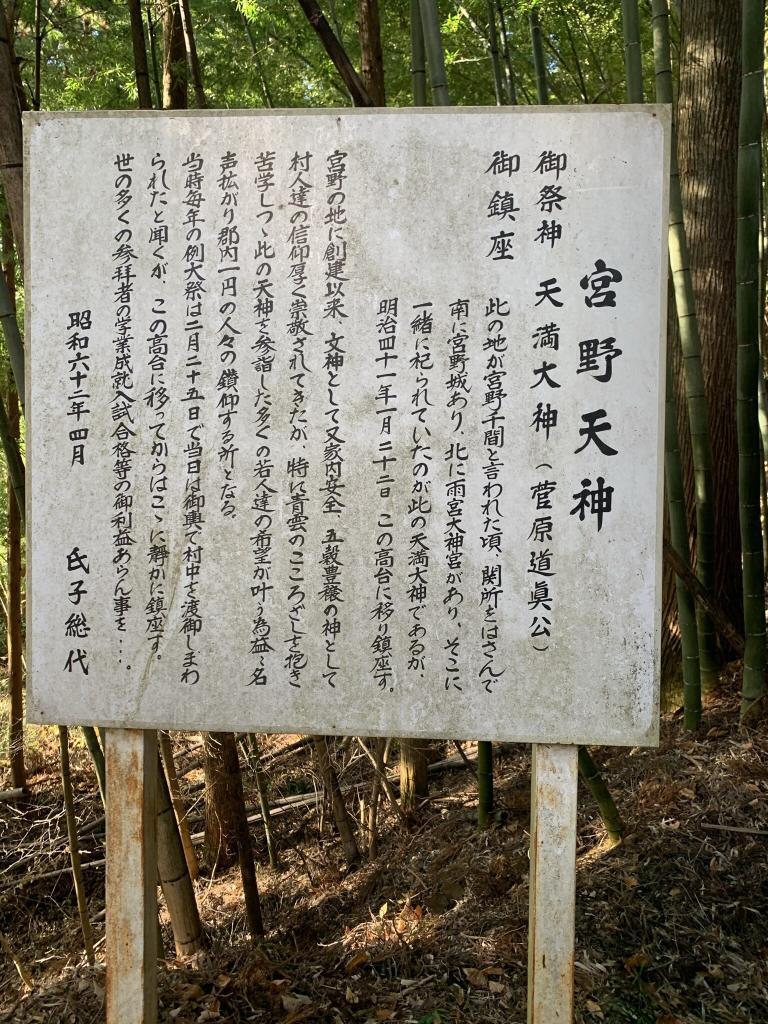 宮野天神
御祭神　天満大神（菅原道眞公）
御鎮座
此の地が宮野千間と言われた頃、関所をはさんで
南に宮野城あり、北に雨宮大神宮があり、そこに
一緒に祀られていたのが此の天満大神であるが、
明治四十一年一月二十二日　この高台に移り鎮座す。
宮野の地に創建以来、文神として又家内安全、五穀豊穣の神として
村人達の信仰厚く崇敬されてきたが、特に青雲のこころざしを抱き
苦学しつゝ此の天神を参詣した多くの若人達の希望が叶う為益々名
声拡がり郡内一円の人々の鑽仰する所となる。
当時毎年の例大祭は二月二十五日で当日は御輿で村中を渡御しまわ
られたと聞くが、この高台に移ってからはこゝに静かに鎮座す。
世の多くの参拝者の学業成就入試合格等の御利益あらん事を・・・。
昭和六十二年四月　氏子総代